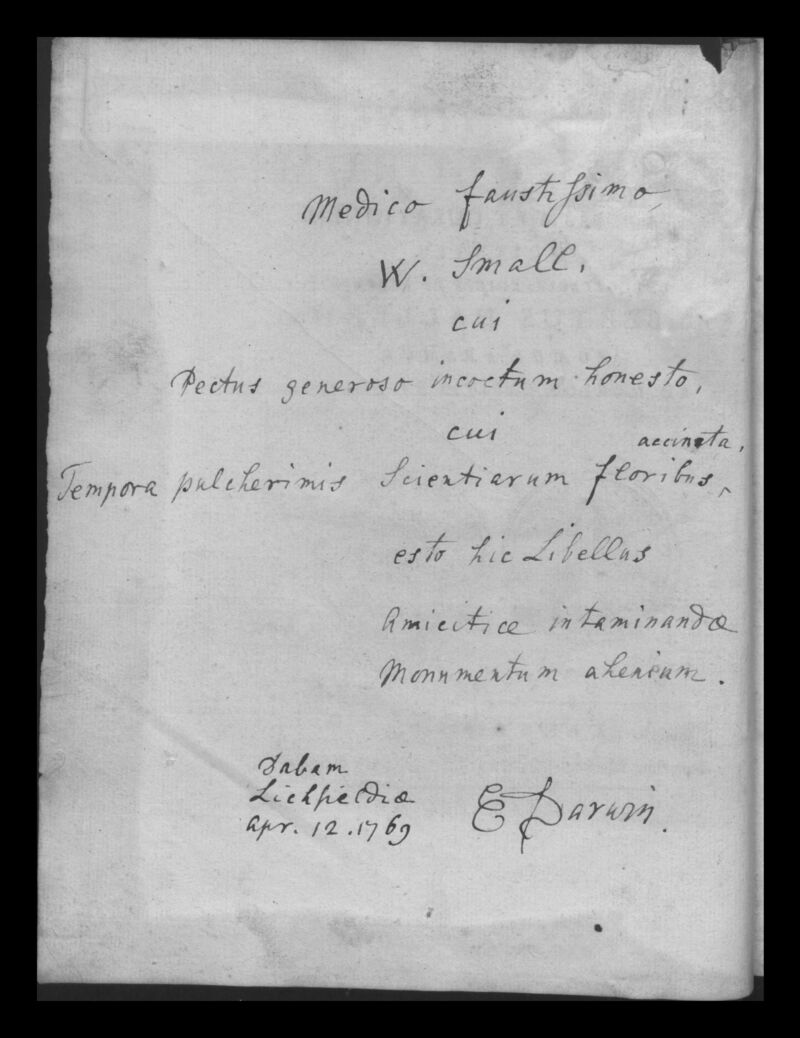 Medico faustissimo,
W. Small,
cui
Pectus generoso incoctum honesto,
cui
accincta,
Tempora pulcherimis Scientiarum floribus,^
esto hic Libellus
Amicitiæ intaminandæ
Monumentum aheneum.
Dabam
Lichfieldiæ
Apr. 12. 1769
E Darwin.